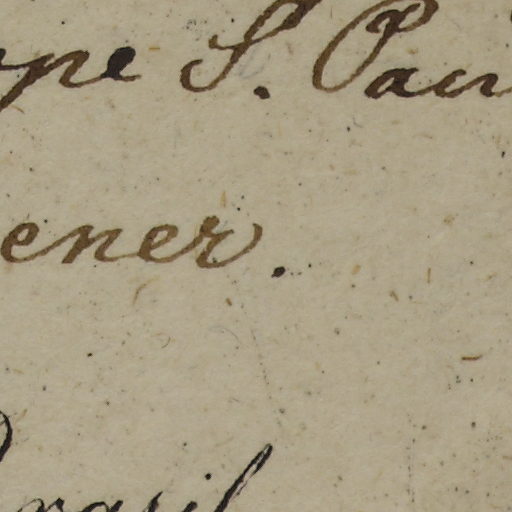 pe S. Pau
ener.
rasil